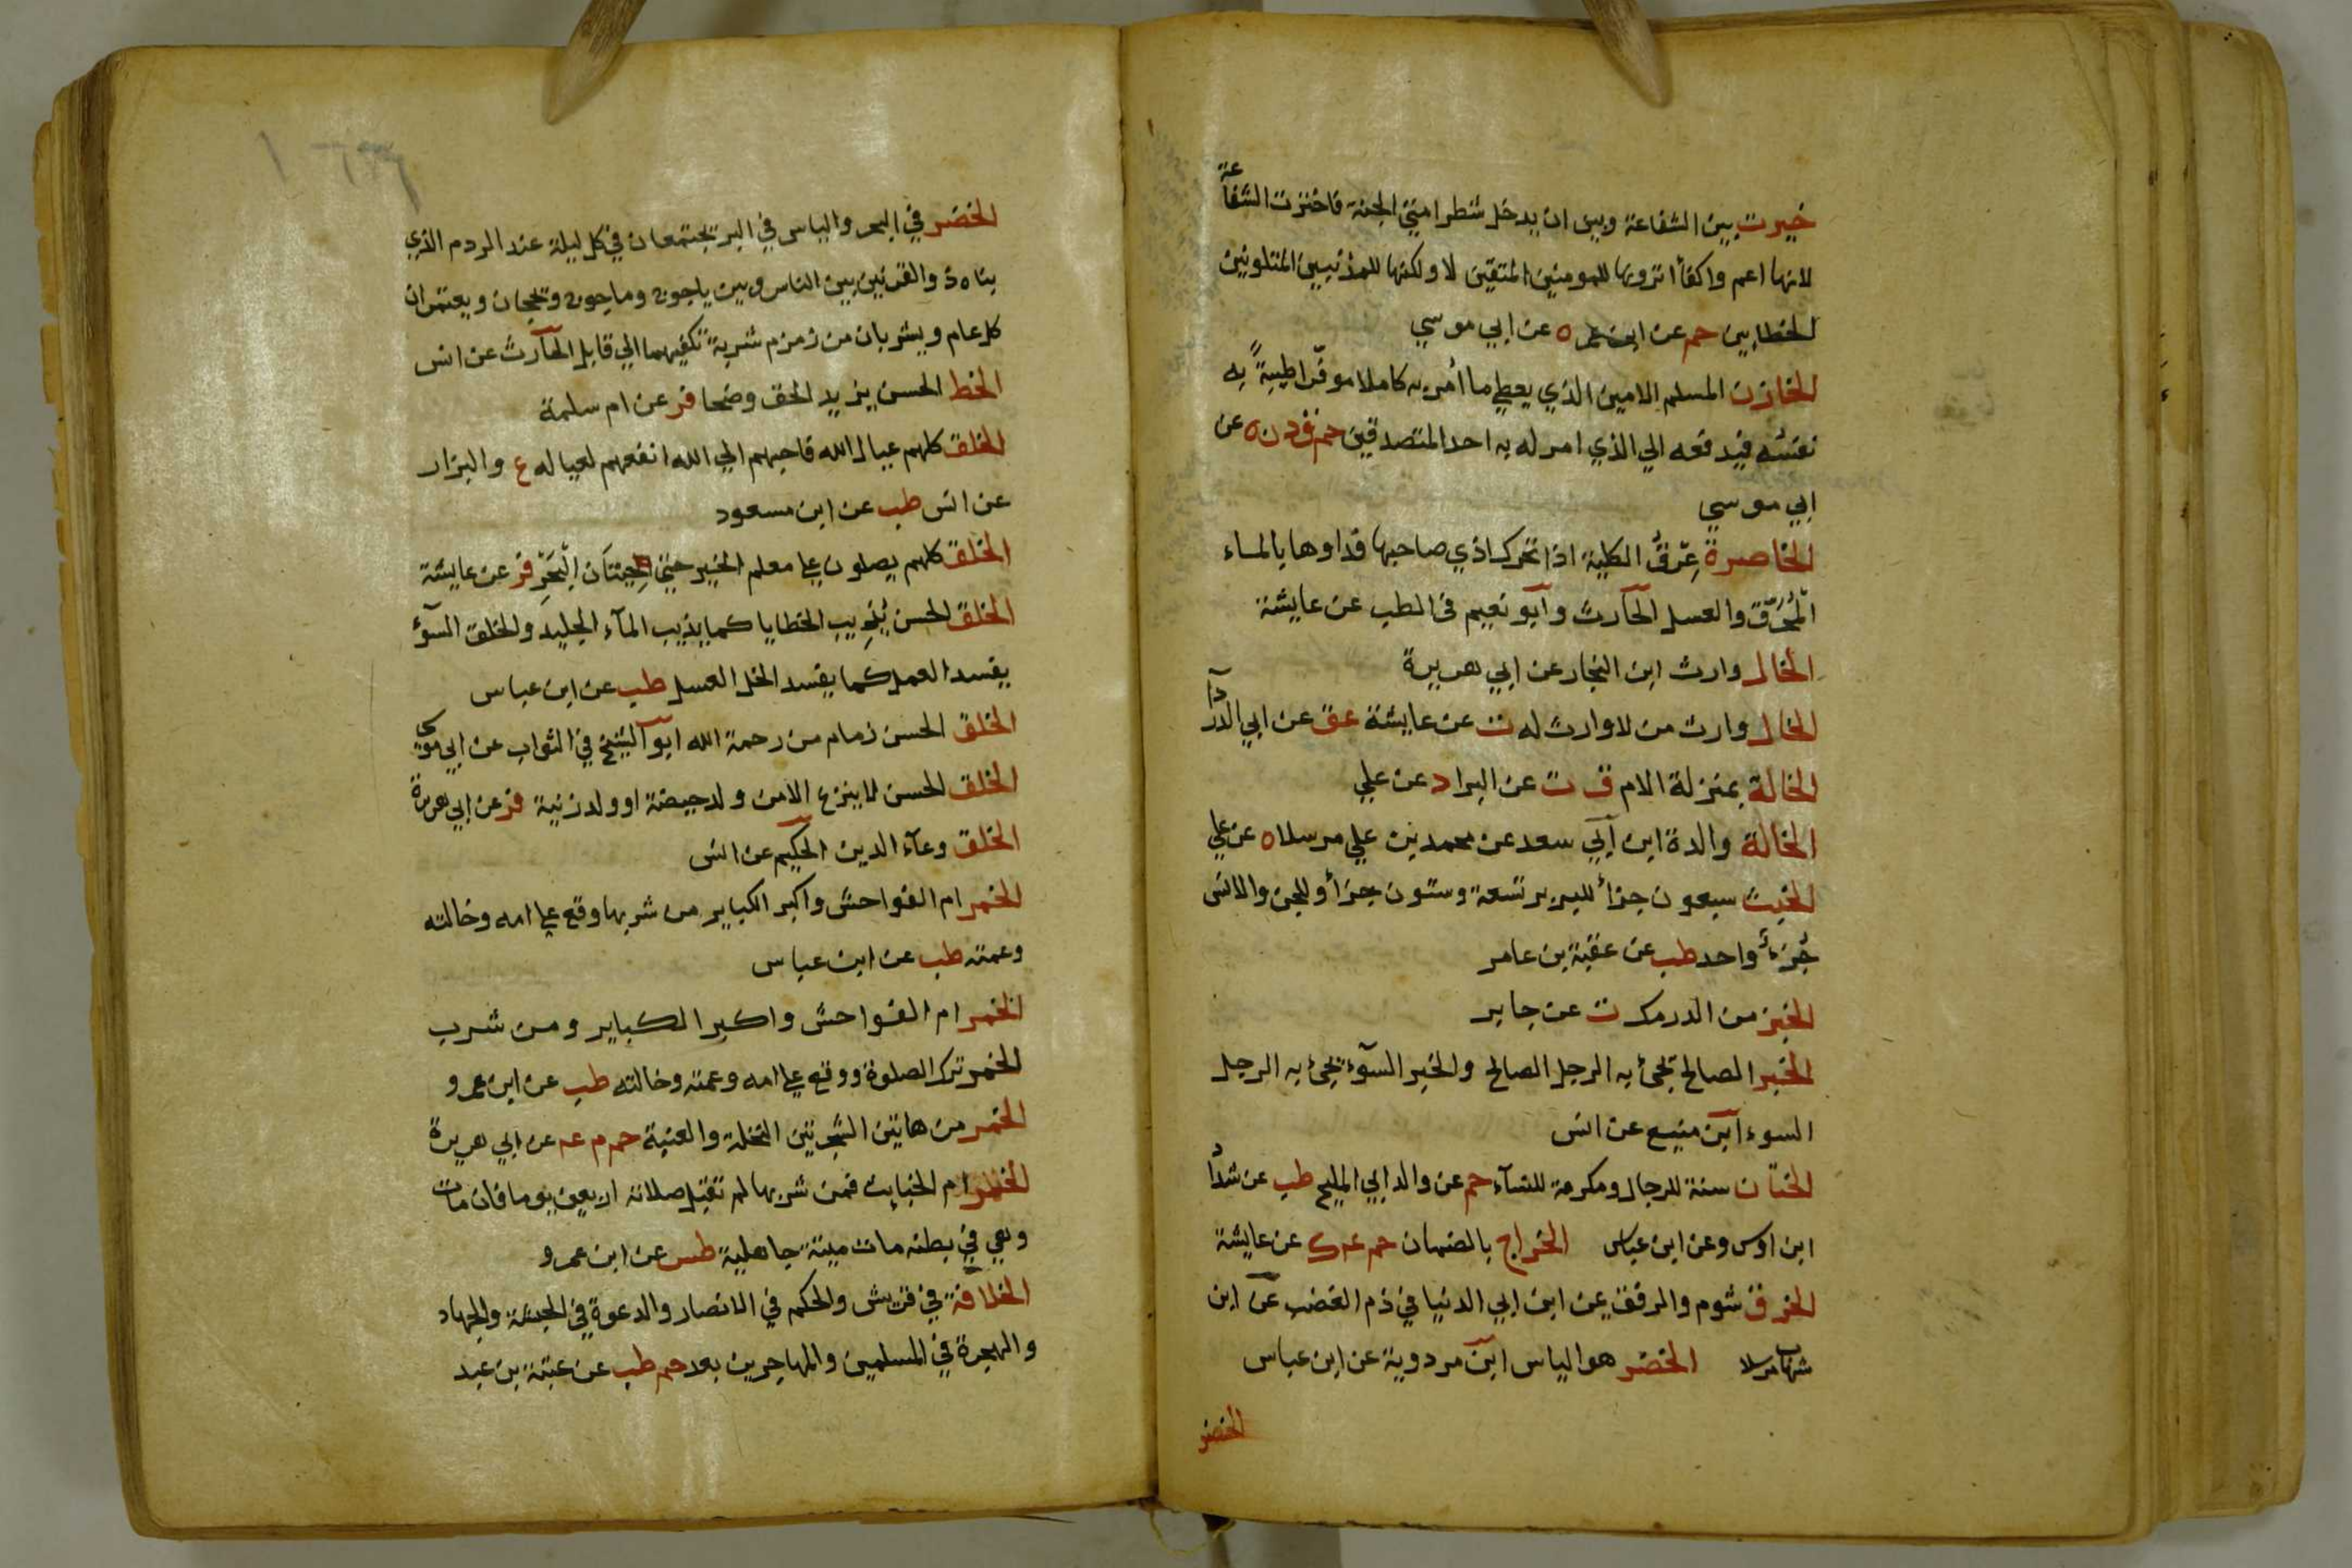 خيرت بين الشفاعة وبين ان يدخل شطر امتي الجنة فاخترت الشفاعة
لانها اعم واكفأ اترونها للمومنين المتقين لا ولكنها للمذنبين المتلوثين
الخطايين حم عن ابن عمر ه عن ابي موسي
الخازن المسلم الامين الذي يعطي ما أمر به كاملا موفّرا طيبةً به
نفسُه فيدفعه الي الذي امر له به احد المتصدقين حم ق د ن ه عن
ابي موسي
الخاصرة عِرْقُ الكلية اذا تحرك اذي صاحبها فداوها بالماء
المُحْرَق والعسل الحارث وابو نعيم في الطب عن عايشة
الخال وارث ابن النجار عن ابي هريرة
الخال وارث من لا وارث له ت عن عايشة عق عن ابي الدردآ
الخالة بمنزلة الام ق ت عن البرا د عن علي
الخالة والدة ابن ابي سعد عن محمد بن علي مرسلا ه عن علي
الخبث سبعون جزأ للبربر تسعة وستون جزأ وللجن والانس
جُزءٌ واحد طب عن عقبة بن عامر
الخبز من الدرمك ت عن جابر
الخبر الصالح يجئ به الرجل الصالح والخبر السوٓء يجئ به الرجل
السوء ابن منيع عن انس
الختان سنة للرجال ومكرمة للنسآء حم عن والد ابي المليح طب عن شداد
ابن اوس وعن ابن عباس الخراج بالضمان حم عم ك عن عايشة
الخرق شوم والرفق يمن ابن ابي الدنيا في ذم الغضب عن ابن
شهاب مرسلا الخضر هو الياس ابن مردوية عن ابن عباس
الخضر
الخضر في البحر والياس في البر يجتمعان في كل ليلة عند الردم الذي
بناه ذو القرنين بين الناس وبين ياجوج وماجوج ويحجان ويعتمران
كل عام ويشربان من زمزم شربة تكفيهما الي قابل الحارث عن انس
الخط الحسن يزيد الحق وضحا فر عن ام سلمة
الخلق كلهم عيال الله فاحبهم الي الله انفعهم لعياله ع والبزار
عن انس طب عن ابن مسعود
الخلق كلهم يصلون علي معلم الخير حتي حيتان البحر فر عن عايشة
الخلق الحسن يُذِيب الخطايا كما يذيب المآء الجليد والخلق السوٓء
يفسد العمل كما يفسد الخل العسل طب عن ابن عباس
الخلق الحسن زمام من رحمة الله ابو الشيخ في الثواب عن ابي موسي
الخلق الحسن لا ينزع الا من ولد حيضة او ولد زنية فر عن ابي هريرة
الخلق وعآء الدين الحكيم عن انس
الخمر ام الفواحش واكبر الكباير من شربها وقع علي امه وخالته
وعمته طب عن ابن عباس
الخمر ام الفواحش واكبر الكباير ومن شرب
الخمر ترك الصلوة ووقع علي امه وعمته وخالته طب عن ابن عمرو
الخمر من هاتين الشجرتين النخلة والعنبة حم م عم عن ابي هريرة
الخمر ام الخبايث فمن شربها لم تقبل صلاته اربعين يوما فان مات
وهي في بطنه مات ميتة جاهلية طس عن ابن عمرو
الخلافة في قريش والحكم في الانصار والدعوة في الحبشة والجهاد
والهجرة في المسلمين والمهاجرين بعد حم طب عن عتبة بن عبد